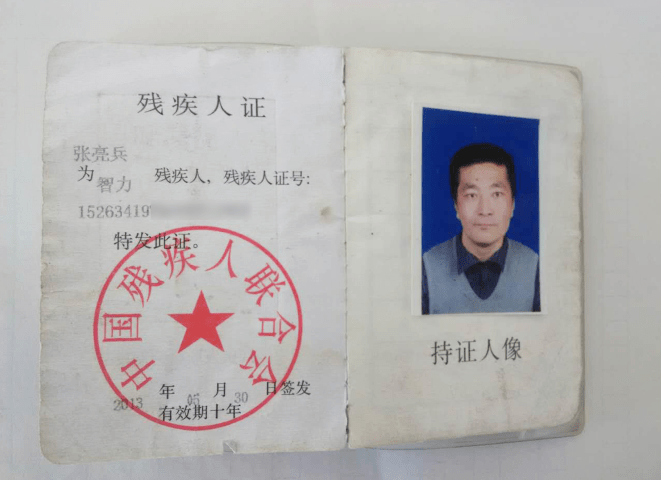 残疾人证
张亮兵
为 智力 残疾人，残疾人证号：
15263419
特发此证。
中国残疾人联合会
2013 年 05 月 30 日签发
有效期十年
持证人像